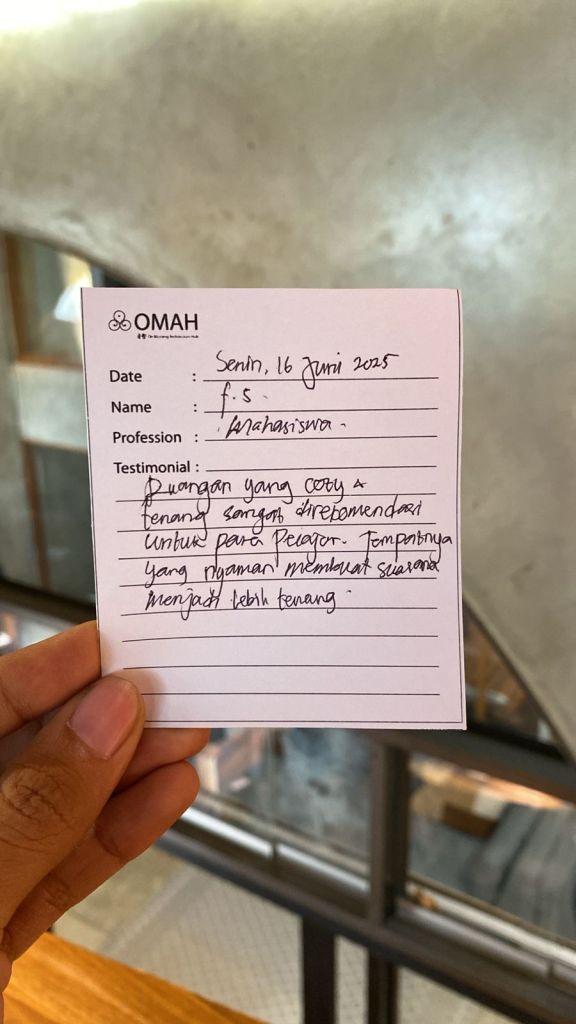 OMAH
Date : Senin, 16 Juni 2025
Name : F.S.
Profession : Mahasiswa
Testimonial :
Ruangan yang cozy &
tenang sangat direkomendasi
untuk para Pelajar. Tempatnya
yang nyaman membuat suasana
menjadi lebih tenang.